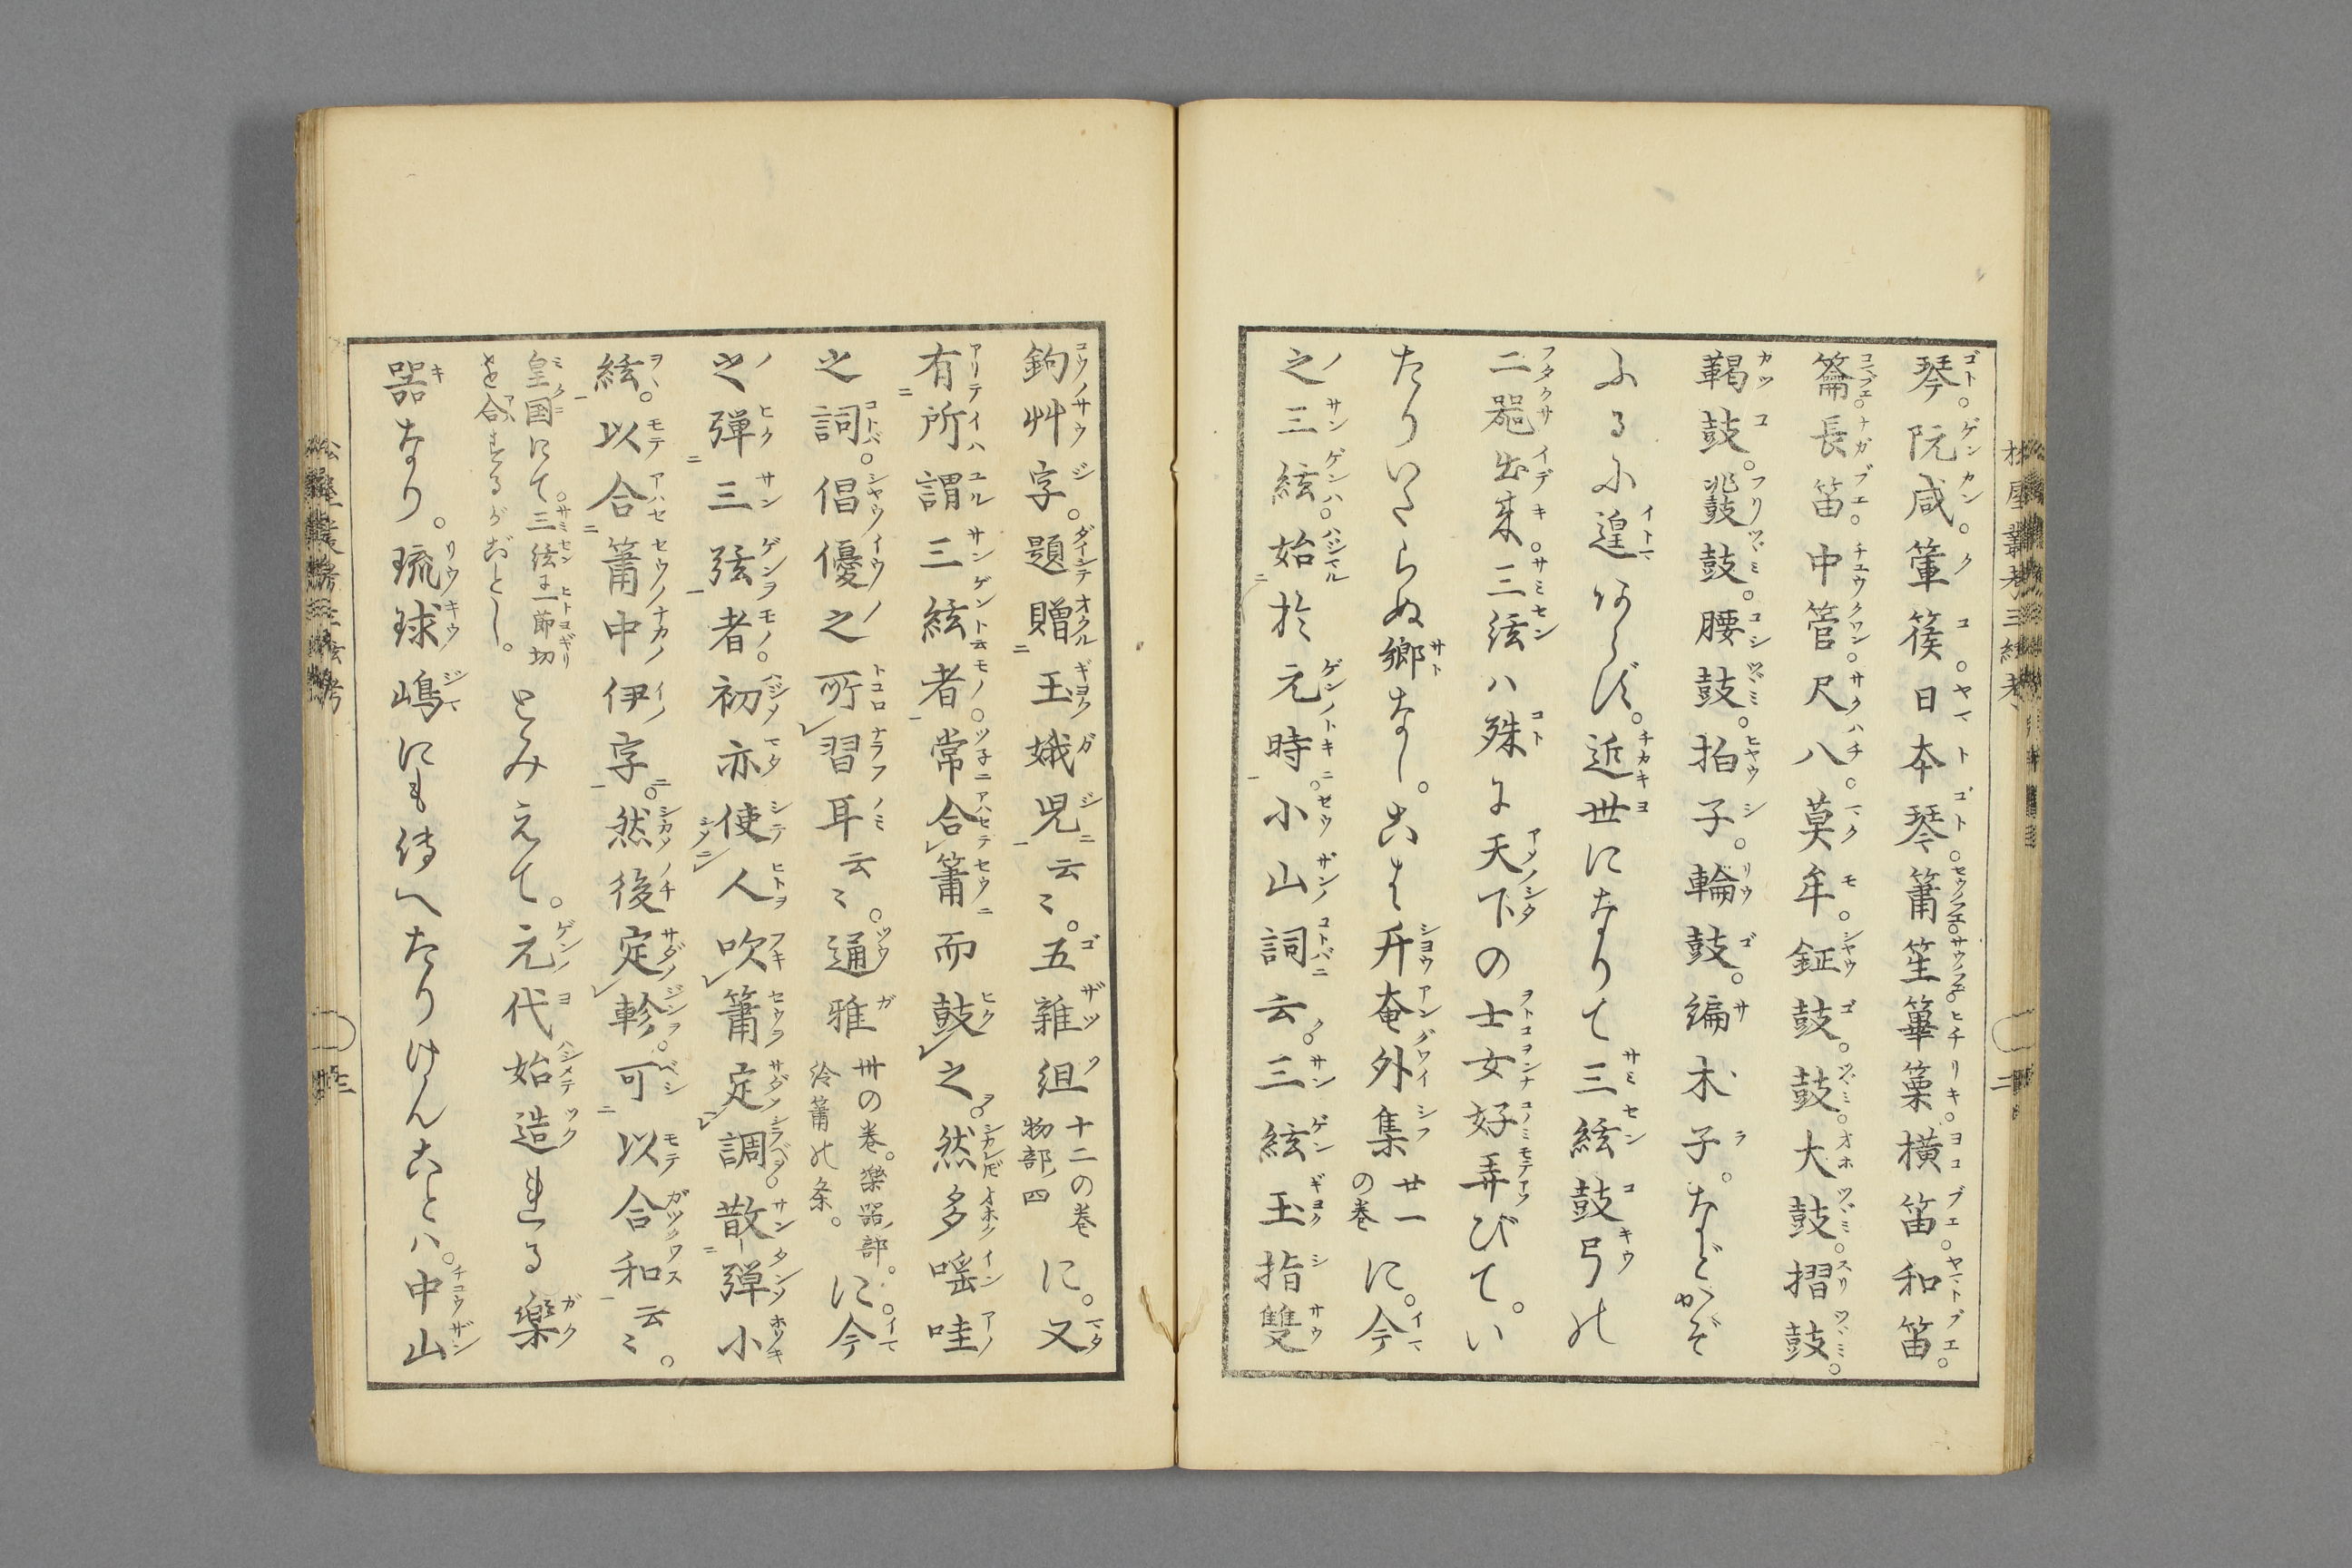 琴。阮咸。箜篌。日本琴。簫。笙。篳篥。横笛。和笛。
籥。長笛。中管。尺八。莫牟。鉦鼓。鼓。大鼓。摺鼓。
鞨鼓。鼗鼓。腰鼓。拍子。輪鼓。編木子。などかぞ
ふるに遑あらず。近世になりて三絃鼓弓の
二器出来。三絃ハ殊に天下の士女好弄びて。い
たりいたらぬ郷なし。こは升菴外集廿一の巻に。今
之三絃始於元時。小山詞云。三絃玉指雙
鉤艸字。題贈玉娥児云々。五雑組十二の巻物部ノ四に。又
有所謂三絃者。常合簫而鼓之。然多哇
之詞。倡優之所習耳云々。通雅卅の巻。楽器ノ部。簫の条。に。今
之弾三弦者。初亦使人吹簫定調。散弾小
絃。以合簫中伊字。然後定軫。可以合和云々。
皇国にて三絃に一節切を合するがごとし。とみえて。元代始造れる楽
器なり。琉球嶋にも伝へたりけんことハ。中山